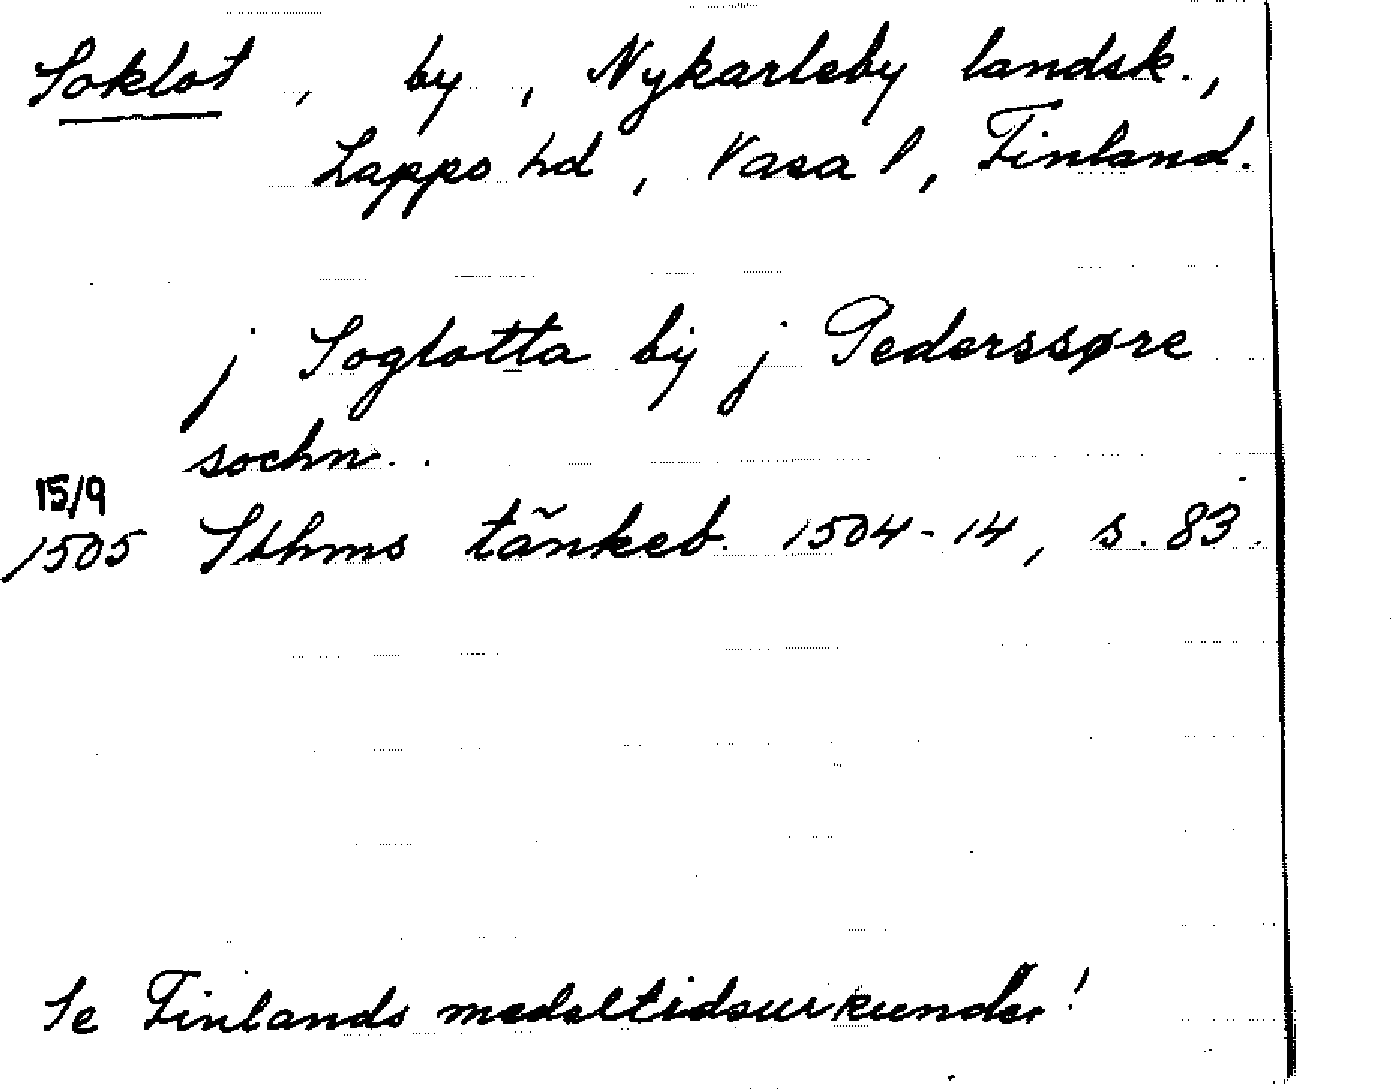 Soklot, by, Nykarleby landsk.,
Lappo hd, Vasa l, Finland.
j Soglotta bÿ j Pederssøre
sochn..
15/9
1505 Sthms tänkeb. 1504-14, s. 83.
Se Finlands medeltidsurkunder!